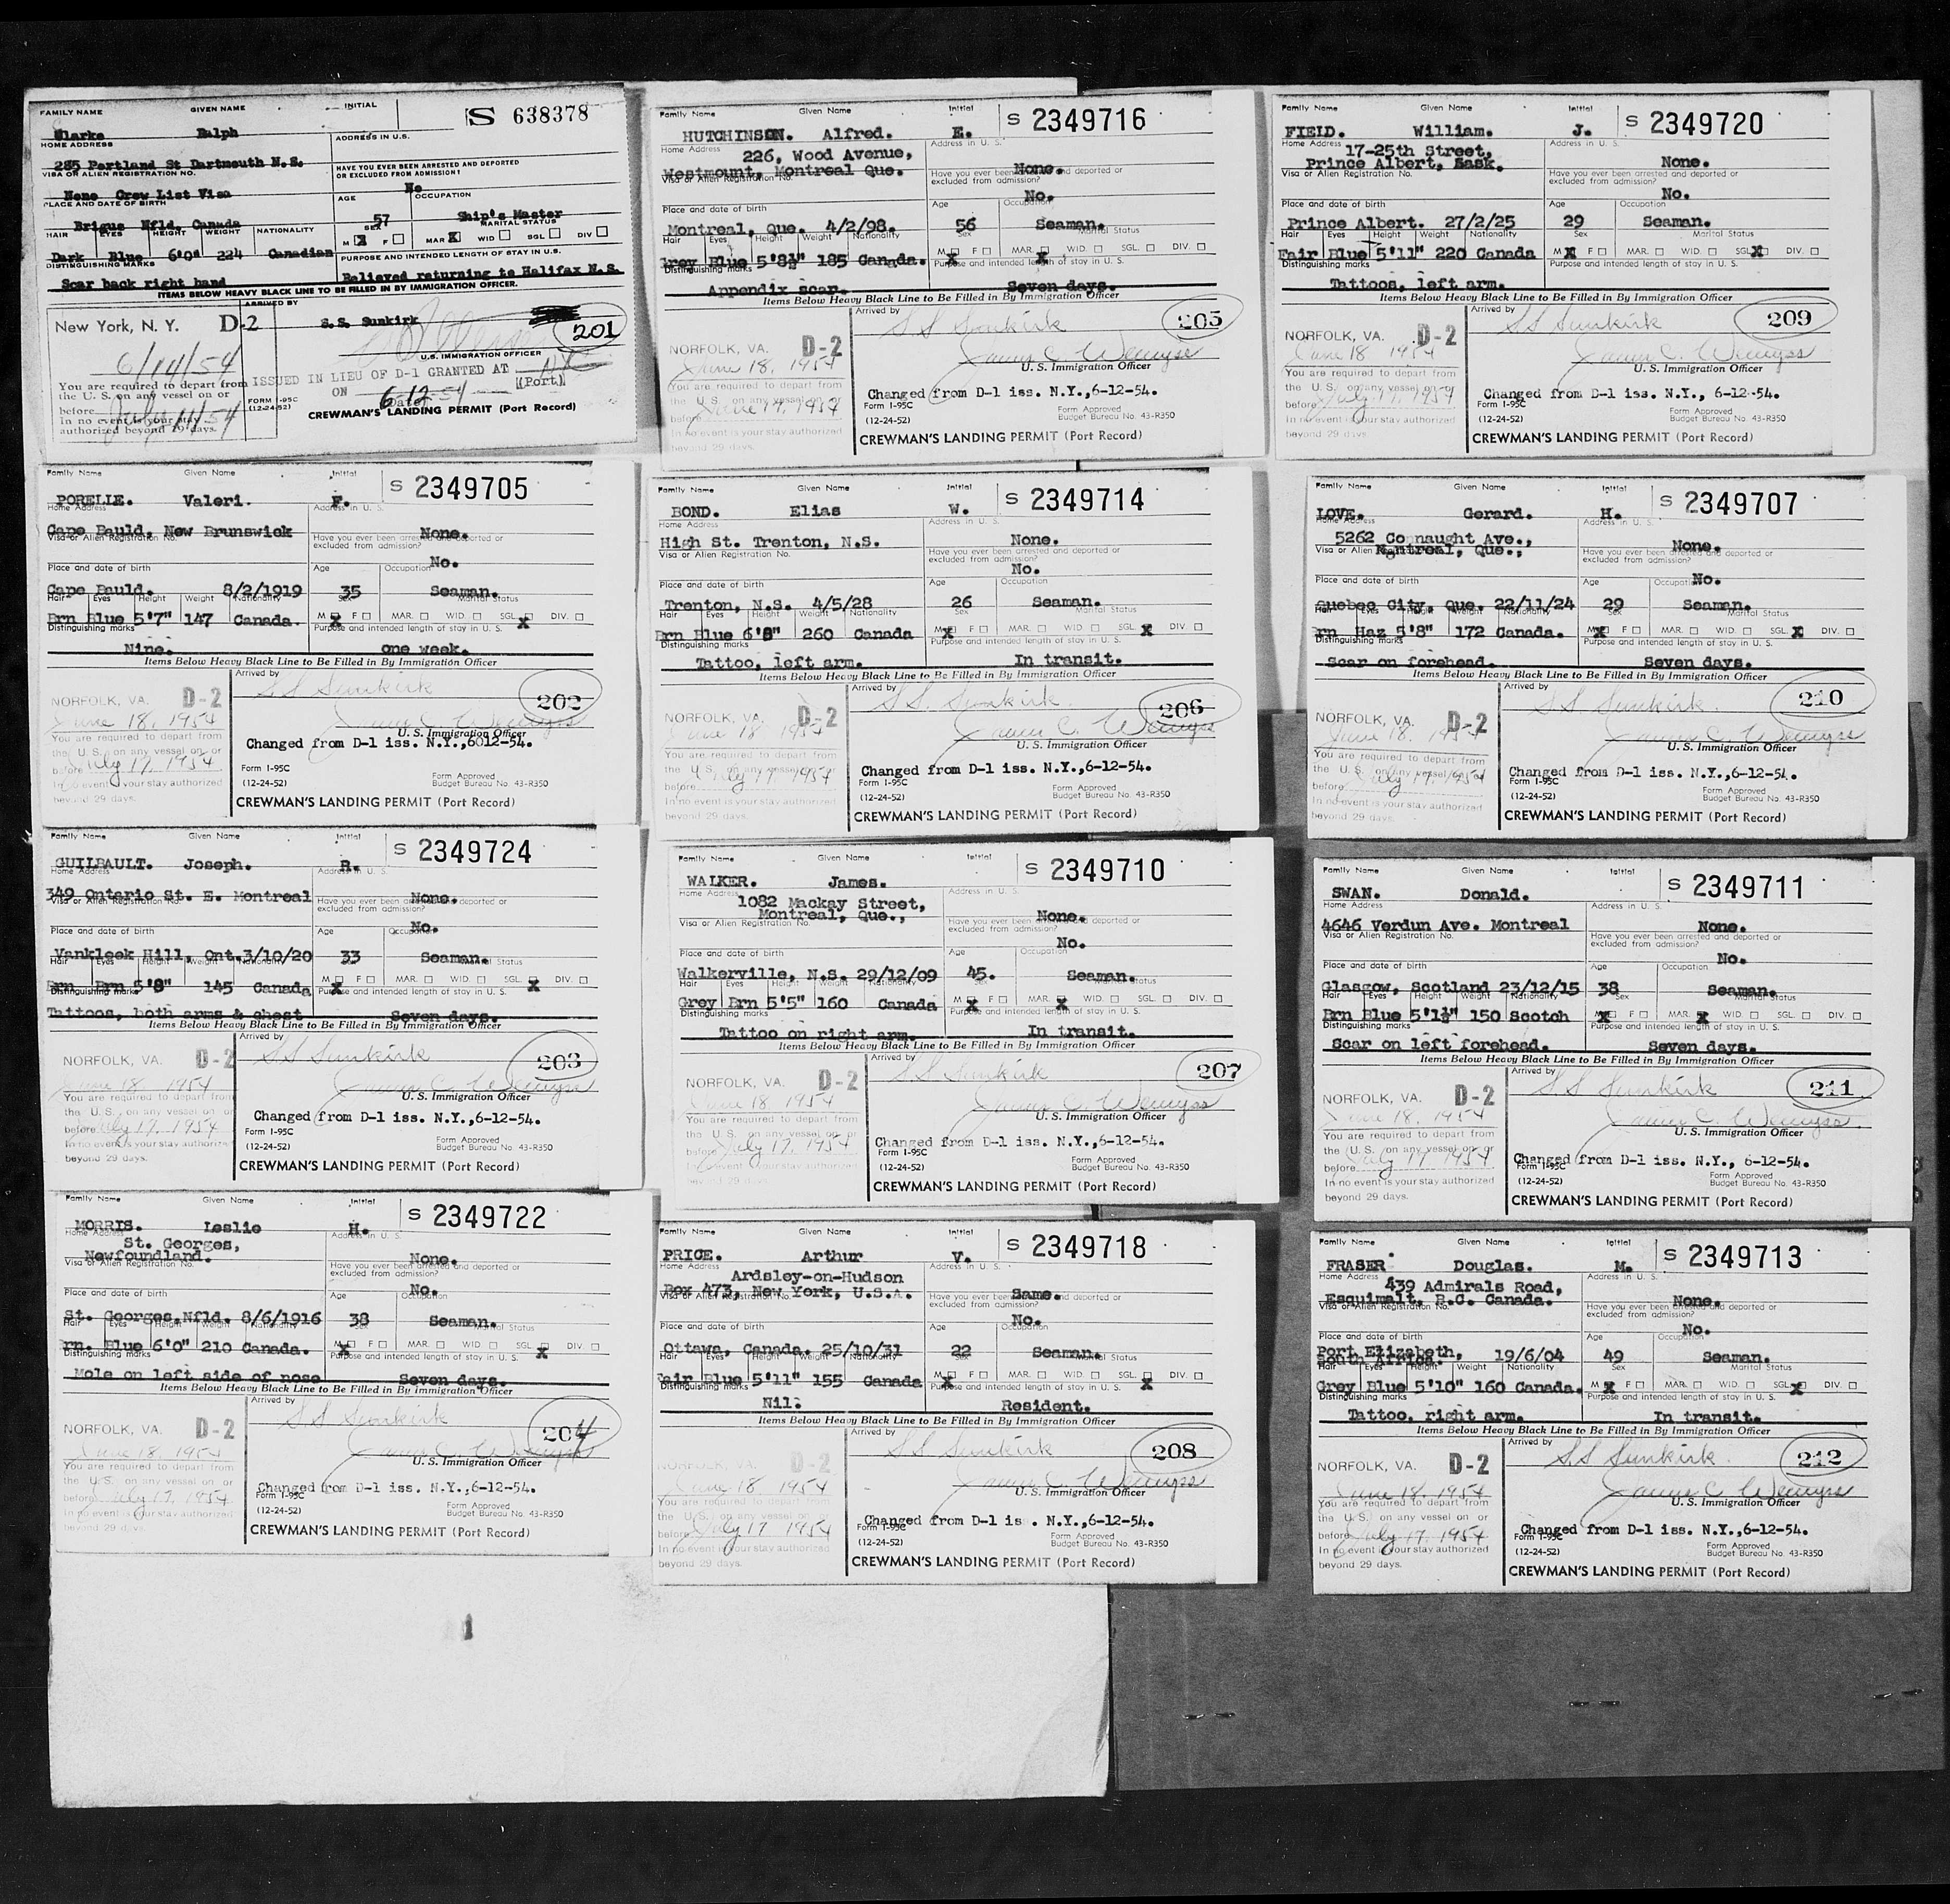 FAMILY NAME GIVEN NAME INITIAL
S 638378
Clarke Ralph
HOME ADDRESS ADDRESS IN U.S.
285 Portland St Dartmouth N.S.
VISA OR ALIEN REGISTRATION NO. HAVE YOU EVER BEEN ARRESTED AND DEPORTED OR EXCLUDED FROM ADMISSION?
None Crew List Visa No
PLACE AND DATE OF BIRTH AGE OCCUPATION
Brigus Nfld. Canada 57 Ship's Master
HAIR EYES HEIGHT WEIGHT NATIONALITY SEX MARITAL STATUS
M X F MAR X WID SGL DIV
Dark Blue 6'0" 224 Canadian
DISTINGUISHING MARKS PURPOSE AND INTENDED LENGTH OF STAY IN U.S.
Scar back right hand Relieved returning to Halifax N.S.
ITEMS BELOW HEAVY BLACK LINE TO BE FILLED IN BY IMMIGRATION OFFICER.
ARRIVED BY
New York, N. Y. D-2 S.S. Sunkirk 201
6/14/54
U.S. IMMIGRATION OFFICER
You are required to depart from the U.S. on any vessel on or before July 11/54
In no event is your stay authorized beyond 29 days.
ISSUED IN LIEU OF D-1 GRANTED AT NYC (Port)
ON 6-12-54 (Date)
FORM I-95C (12-24-52)
CREWMAN'S LANDING PERMIT (Port Record)
Family Name Given Name Initial
S 2349705
PORELLE. Valeri. F.
Home Address Address in U. S.
Cape Bauld, New Brunswick None.
Visa or Alien Registration No. Have you ever been arrested and deported or excluded from admission?
No.
Place and date of birth Age Occupation
Cape Bauld. 8/2/1919 35 Seaman.
Hair Eyes Height Weight Nationality Sex Marital Status
Brn Blue 5'7" 147 Canada. M X F MAR. WID SGL. X DIV.
Distinguishing marks Purpose and intended length of stay in U. S.
Nine. one week.
Items Below Heavy Black Line to Be Filled in By Immigration Officer
Arrived by
SS Sunkirk 202
NORFOLK, VA. D-2
June 18, 1954
James C. Wemyss
U. S. Immigration Officer
You are required to depart from the U. S. on any vessel on or before July 17, 1954
In no event is your stay authorized beyond 29 days.
Changed from D-1 iss. N.Y.,6012-54.
Form I-95C (12-24-52)
Form Approved
Budget Bureau No. 43-R350
CREWMAN'S LANDING PERMIT (Port Record)
Family Name Given Name Initial
S 2349724
GUILBAULT. Joseph. R.
Home Address Address in U. S.
349 Ontario St. E. Montreal None.
Visa or Alien Registration No. Have you ever been arrested and deported or excluded from admission?
No.
Place and date of birth Age Occupation
Vankleek Hill, Ont. 3/10/20 33 Seaman.
Hair Eyes Height Weight Nationality Sex Marital Status
Brn Brn 5'8" 145 Canada M X F MAR. WID SGL. X DIV.
Distinguishing marks Purpose and intended length of stay in U. S.
Tattoos, both arms & chest Seven days.
Items Below Heavy Black Line to Be Filled in By Immigration Officer
Arrived by
SS Sunkirk 203
NORFOLK, VA. D-2
June 18 1954
James C. Wemyss
U. S. Immigration Officer
You are required to depart from the U. S. on any vessel on or before July 17, 1954
In no event is your stay authorized beyond 29 days.
Changed from D-1 iss. N.Y.,6-12-54.
Form I-95C (12-24-52)
Form Approved
Budget Bureau No. 43-R350
CREWMAN'S LANDING PERMIT (Port Record)
Family Name Given Name Initial
S 2349722
MORRIS. Leslie H.
Home Address Address in U. S.
St. Georges,
Newfoundland. None.
Visa or Alien Registration No. Have you ever been arrested and deported or excluded from admission?
No.
Place and date of birth Age Occupation
St. Georges,Nfld. 8/6/1916 38 Seaman.
Hair Eyes Height Weight Nationality Sex Marital Status
rn. Blue 6'0" 210 Canada. M X F MAR. WID SGL. X DIV.
Distinguishing marks Purpose and intended length of stay in U. S.
Mole on left side of nose Seven days.
Items Below Heavy Black Line to Be Filled in By Immigration Officer
Arrived by
SS Sunkirk 204
NORFOLK, VA. D-2
June 18, 1954
James C. Wemyss
U. S. Immigration Officer
You are required to depart from the U. S. on any vessel on or before July 17, 1954
In no event is your stay authorized beyond 29 days.
Changed from D-1 iss. N.Y.,6-12-54.
Form I-95C (12-24-52)
Form Approved
Budget Bureau No. 43-R350
CREWMAN'S LANDING PERMIT (Port Record)
Family Name Given Name Initial
S 2349716
HUTCHINSON. Alfred. E.
Home Address Address in U. S.
226, Wood Avenue,
Westmount, Montreal Que. None.
Visa or Alien Registration No. Have you ever been arrested and deported or excluded from admission?
No.
Place and date of birth Age Occupation
Montreal, Que. 4/2/98. 56 Seaman.
Hair Eyes Height Weight Nationality Sex Marital Status
Grey Blue 5'8½" 185 Canada. M X F MAR. X WID. SGL. DIV.
Distinguishing marks Purpose and intended length of stay in U. S.
Appendix scar. Seven days.
Items Below Heavy Black Line to Be Filled in By Immigration Officer
Arrived by
SS Sunkirk 205
NORFOLK, VA. D-2
June 18, 1954
James C. Wemyss
U. S. Immigration Officer
You are required to depart from the U. S. on any vessel on or before June 17, 1954
In no event is your stay authorized beyond 29 days.
Changed from D-1 iss. N.Y.,6-12-54.
Form I-95C (12-24-52)
Form Approved
Budget Bureau No. 43-R350
CREWMAN'S LANDING PERMIT (Port Record)
Family Name Given Name Initial
S 2349714
BOND. Elias W.
Home Address Address in U. S.
High St. Trenton, N.S. None.
Visa or Alien Registration No. Have you ever been arrested and deported or excluded from admission?
No.
Place and date of birth Age Occupation
Trenton, N.S. 4/5/28 26 Seaman.
Hair Eyes Height Weight Nationality Sex Marital Status
Brn Blue 6'8" 260 Canada M X F MAR. WID. SGL. X DIV.
Distinguishing marks Purpose and intended length of stay in U. S.
Tattoo, left arm. In transit.
Items Below Heavy Black Line to Be Filled in By Immigration Officer
Arrived by
SS. Sunkirk. 206
NORFOLK, VA. D-2
June 18 1954
James C. Wemyss
U. S. Immigration Officer
You are required to depart from the U. S. on any vessel on or before July 17, 1954
In no event is your stay authorized beyond 29 days.
Changed from D-1 iss. N.Y.,6-12-54.
Form I-95C (12-24-52)
Form Approved
Budget Bureau No. 43-R350
CREWMAN'S LANDING PERMIT (Port Record)
Family Name Given Name Initial
S 2349710
WALKER. James.
Home Address Address in U. S.
1082 Mackay Street,
Montreal, Que., None.
Visa or Alien Registration No. Have you ever been arrested and deported or excluded from admission?
No.
Place and date of birth Age Occupation
Walkerville, N.S. 29/12/09 45. Seaman.
Hair Eyes Height Weight Nationality Sex Marital Status
Grey Brn 5'5" 160 Canada M X F MAR. X WID. SGL. DIV.
Distinguishing marks Purpose and intended length of stay in U. S.
Tattoo on right arm. In transit.
Items Below Heavy Black Line to Be Filled in By Immigration Officer
Arrived by
SS Sunkirk 207
NORFOLK, VA. D-2
June 18 1954
James C. Wemyss
U. S. Immigration Officer
You are required to depart from the U. S. on any vessel on or before July 17, 1954
In no event is your stay authorized beyond 29 days.
Changed from D-1 iss. N.Y.,6-12-54.
Form I-95C (12-24-52)
Form Approved
Budget Bureau No. 43-R350
CREWMAN'S LANDING PERMIT (Port Record)
Family Name Given Name Initial
S 2349718
PRICE. Arthur V.
Home Address Address in U. S.
Ardsley-on-Hudson
Box 473, New York, U.S.A. Same.
Visa or Alien Registration No. Have you ever been arrested and deported or excluded from admission?
No.
Place and date of birth Age Occupation
Ottawa, Canada. 25/10/31 22 Seaman.
Hair Eyes Height Weight Nationality Sex Marital Status
Fair Blue 5'11" 155 Canada M X F MAR. WID. SGL. X DIV.
Distinguishing marks Purpose and intended length of stay in U. S.
Nil. Resident.
Items Below Heavy Black Line to Be Filled in By Immigration Officer
Arrived by
SS Sunkirk 208
NORFOLK, VA. D-2
June 18, 1954
James C. Wemyss
U. S. Immigration Officer
You are required to depart from the U. S. on any vessel on or before July 17 1954
In no event is your stay authorized beyond 29 days.
Changed from D-1 is . N.Y.,6-12-54.
Form I-95C (12-24-52)
Form Approved
Budget Bureau No. 43-R350
CREWMAN'S LANDING PERMIT (Port Record)
Family Name Given Name Initial
S 2349720
FIELD. William. J.
Home Address Address in U. S.
17-25th Street,
Prince Albert, Sask. None.
Visa or Alien Registration No. Have you ever been arrested and deported or excluded from admission?
No.
Place and date of birth Age Occupation
Prince Albert. 27/2/25 29 Seaman.
Hair Eyes Height Weight Nationality Sex Marital Status
Fair Blue 5'11" 220 Canada M X F MAR. WID. SGL. X DIV.
Distinguishing marks Purpose and intended length of stay in U. S.
Tattoos, left arm.
Items Below Heavy Black Line to Be Filled in By Immigration Officer
Arrived by
SS Sunkirk 209
NORFOLK, VA. D-2
June 18 1954
James C. Wemyss
U. S. Immigration Officer
You are required to depart from the U. S. on any vessel on or before July 17, 1954
In no event is your stay authorized beyond 29 days.
Changed from D-1 iss. N.Y., 6-12-54.
Form I-95C (12-24-52)
Form Approved
Budget Bureau No. 43-R350
CREWMAN'S LANDING PERMIT (Port Record)
Family Name Given Name Initial
S 2349707
LOVE. Gerard. H.
Home Address Address in U. S.
5262 Connaught Ave.,
Montreal, Que., None.
Visa or Alien Registration No. Have you ever been arrested and deported or excluded from admission?
No.
Place and date of birth Age Occupation
Quebec City, Que. 22/11/24 29 Seaman.
Hair Eyes Height Weight Nationality Sex Marital Status
Brn Haz 5'8" 172 Canada. M X F MAR. WID. SGL. X DIV.
Distinguishing marks Purpose and intended length of stay in U. S.
Scar on forehead. Seven days.
Items Below Heavy Black Line to Be Filled in By Immigration Officer
Arrived by
SS Sunkirk. 210
NORFOLK, VA. D-2
June 18, 1954
James C. Wemyss
U. S. Immigration Officer
You are required to depart from the U. S. on any vessel on or before July 17, 1954
In no event is your stay authorized beyond 29 days.
Changed from D-1 iss. N.Y.,6-12-54.
Form I-95C (12-24-52)
Form Approved
Budget Bureau No. 43-R350
CREWMAN'S LANDING PERMIT (Port Record)
Family Name Given Name Initial
S 2349711
SWAN. Donald.
Home Address Address in U. S.
4646 Verdun Ave. Montreal None.
Visa or Alien Registration No. Have you ever been arrested and deported or excluded from admission?
No.
Place and date of birth Age Occupation
Glasgow, Scotland 23/12/15 38 Seaman.
Hair Eyes Height Weight Nationality Sex Marital Status
Brn Blue 5'1½" 150 Scotch M X F MAR. X WID. SGL. DIV.
Distinguishing marks Purpose and intended length of stay in U. S.
Scar on left forehead. Seven days.
Items Below Heavy Black Line to Be Filled in By Immigration Officer
Arrived by
SS Sunkirk 211
NORFOLK, VA. D-2
June 18, 1954
James C. Wemyss
U. S. Immigration Officer
You are required to depart from the U. S. on any vessel on or before July 17 1954
In no event is your stay authorized beyond 29 days.
Changed from D-1 iss. N.Y., 6-12-54.
Form I-95C (12-24-52)
Form Approved
Budget Bureau No. 43-R350
CREWMAN'S LANDING PERMIT (Port Record)
Family Name Given Name Initial
S 2349713
FRASER Douglas. M.
Home Address Address in U. S.
439 Admirals Road,
Esquimalt, B.C. Canada. None.
Visa or Alien Registration No. Have you ever been arrested and deported or excluded from admission?
No.
Place and date of birth Age Occupation
Port Elizabeth,
South Africa. 19/6/04 49 Seaman.
Hair Eyes Height Weight Nationality Sex Marital Status
Grey Blue 5'10" 160 Canada. M X F MAR. WID. SGL. X DIV.
Distinguishing marks Purpose and intended length of stay in U. S.
Tattoo, right arm. In transit.
Items Below Heavy Black Line to Be Filled in By Immigration Officer
Arrived by
SS Sunkirk. 212
NORFOLK, VA. D-2
June 18, 1954
James C. Wemyss
U. S. Immigration Officer
You are required to depart from the U. S. on any vessel on or before July 17, 1954
In no event is your stay authorized beyond 29 days.
Changed from D-1 iss. N.Y.,6-12-54.
Form I-95C (12-24-52)
Form Approved
Budget Bureau No. 43-R350
CREWMAN'S LANDING PERMIT (Port Record)